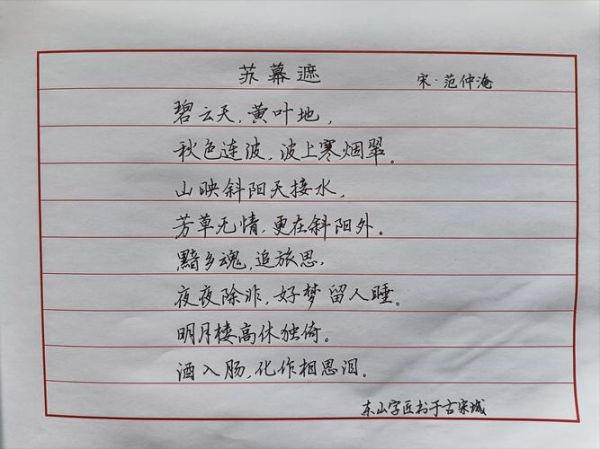 苏幕遮 宋·范仲淹
碧云天,黄叶地,
秋色连波,波上寒烟翠。
山映斜阳天接水,
芳草无情,更在斜阳外。
黯乡魂,追旅思,
夜夜除非,好梦留人睡。
明月楼高休独倚。
酒入肠,化作相思泪。
东山字匠书于古宋城